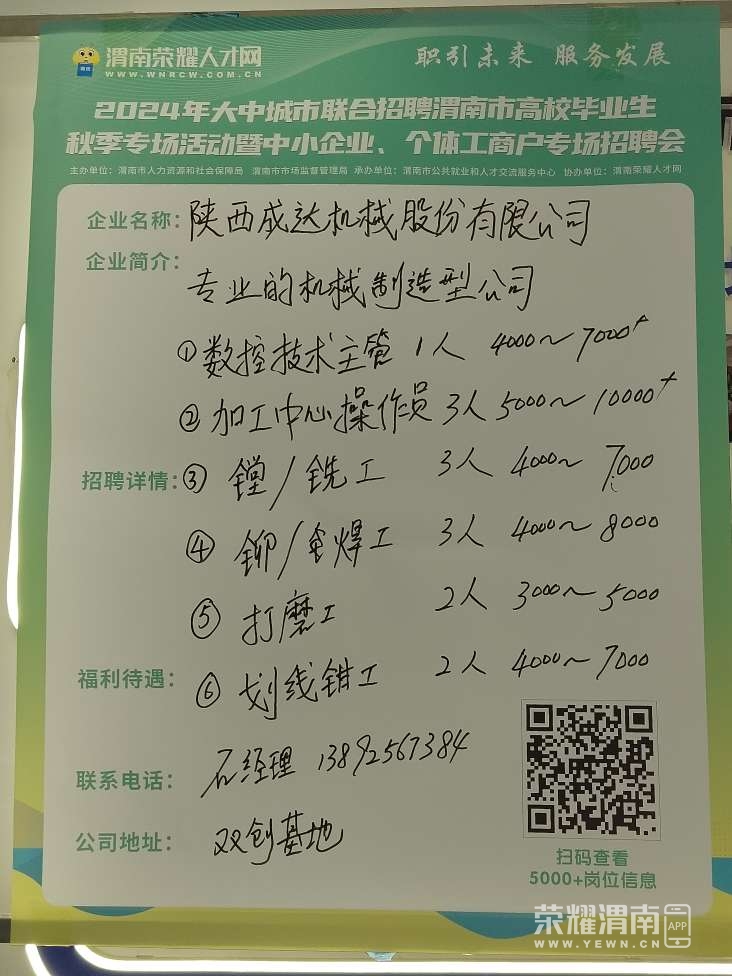 渭南荣耀人才网
WWW.WNRCW.COM.CN
职引未来 服务发展
2024年大中城市联合招聘渭南市高校毕业生
秋季专场活动暨中小企业、个体工商户专场招聘会
主办单位：渭南市人力资源和社会保障局 渭南市市场监督管理局 承办单位：渭南市公共就业和人才交流服务中心 协办单位：渭南荣耀人才网
企业名称：陕西成达机械股份有限公司
企业简介：
专业的机械制造型公司
①数控技术主管 1人 4000～7000+
②加工中心操作员 3人 5000～10000+
招聘详情：③ 镗/铣工 3人 4000～7000
④ 铆/电焊工 3人 4000～8000
⑤ 打磨工 2人 3000～5000
福利待遇：⑥ 划线钳工 2人 4000～7000
联系电话：石经理 13892567384
公司地址：双创基地
扫码查看
5000+岗位信息
荣耀渭南APP
WWW.YEWN.CN